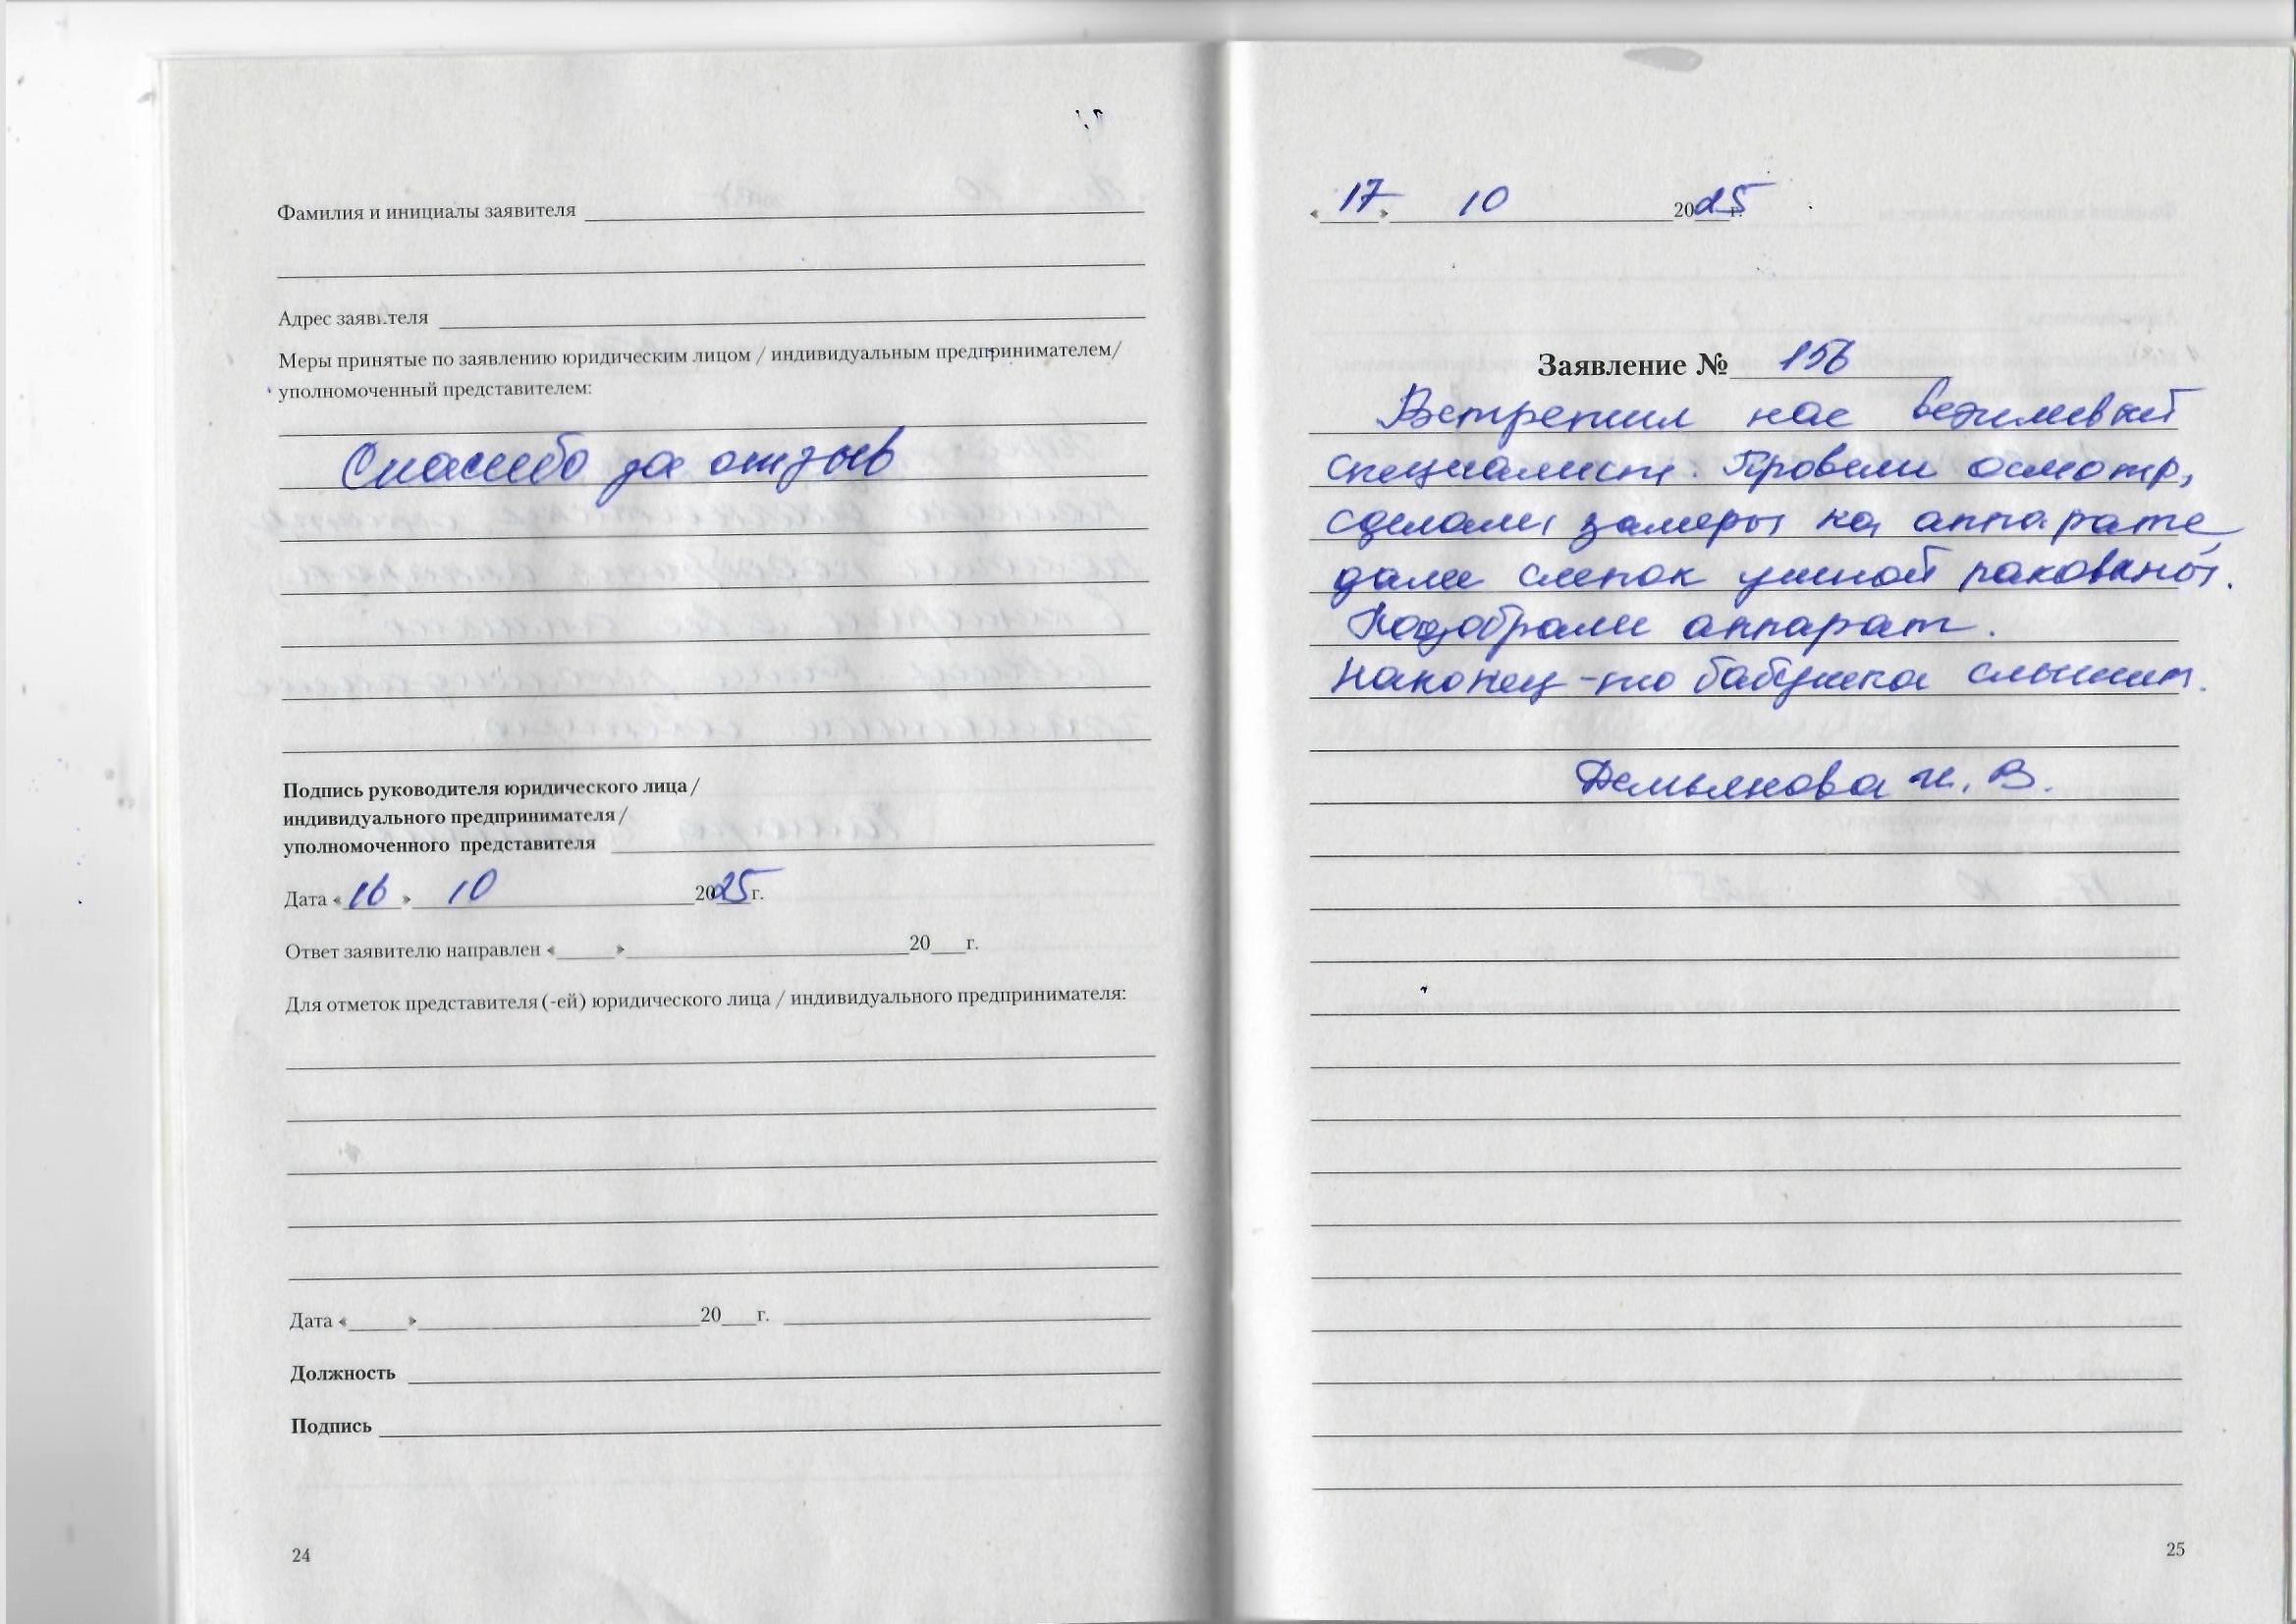 Фамилия и инициалы заявителя
Адрес заявителя
Меры принятые по заявлению юридическим лицом / индивидуальным предпринимателем/
уполномоченный представителем:
Спасибо за отзыв
Подпись руководителя юридического лица /
индивидуального предпринимателя /
уполномоченного представителя
Дата «16» 10 2025г.
Ответ заявителю направлен «____» 20__г.
Для отметок представителя (-ей) юридического лица / индивидуального предпринимателя:
Дата «____» 20__г.
Должность
Подпись
24
«17» 10 2025г.
Заявление № 156
Встретил нас вежливый
специалист. Провели осмотр,
сделали замеры на аппарате
дали слепок ушной раковины.
Подобрали аппарат.
Наконец-то бабушка слышит.
Демьянова Н. В.
25